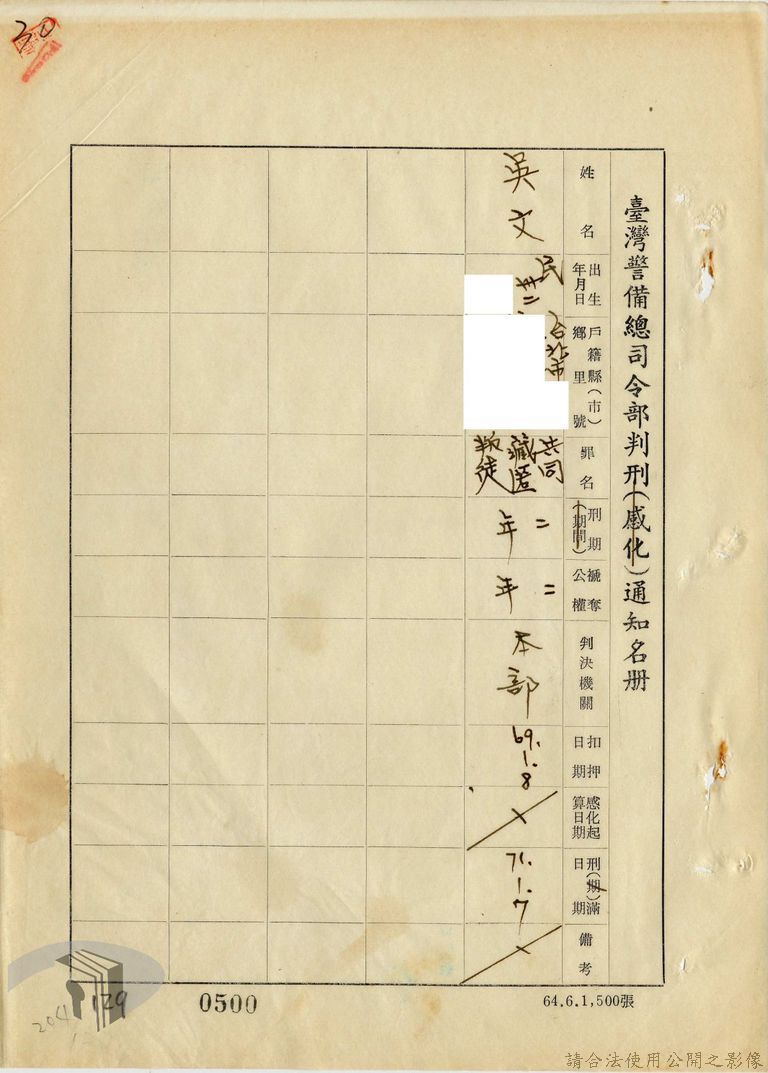 30
臺灣警備總司令部判刑(感化)通知名册
姓名
吳文
出生年月日
民卅二
戶籍縣(市)鄉里號
台北市
罪名
共同藏匿叛徒
刑期(期間)
二年
褫奪公權
二年
判決機關
本部
扣押日期
69.1.8
感化起算日期
刑(期)滿日期
71.1.7
備考
204
129
0500
64.6.1,500張
請合法使用公開之影像